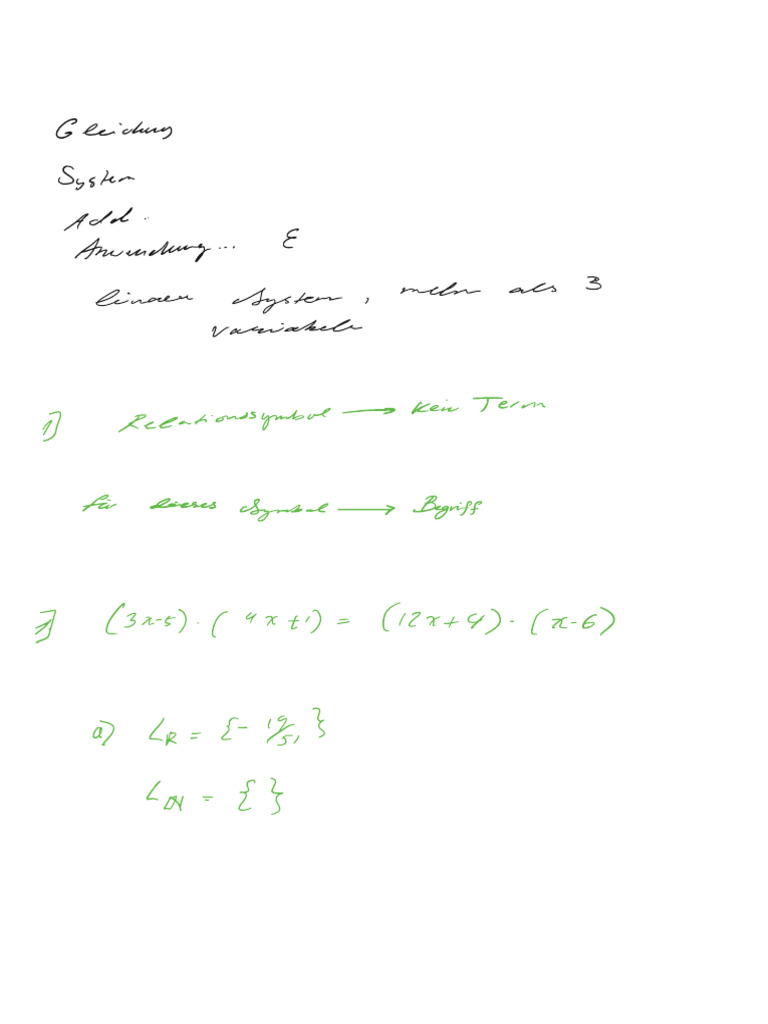 Gleichung
System
Add.
Anwendung... E
linearen System, mehr als 3
Variabeln
1) Relationssymbol → Kein Term
für dieses Symbol → Begriff
2) (3x-5)·(4x+1) = (12x+4)·(x-6)
a) L_R = {- 19/51}
L_N = { }